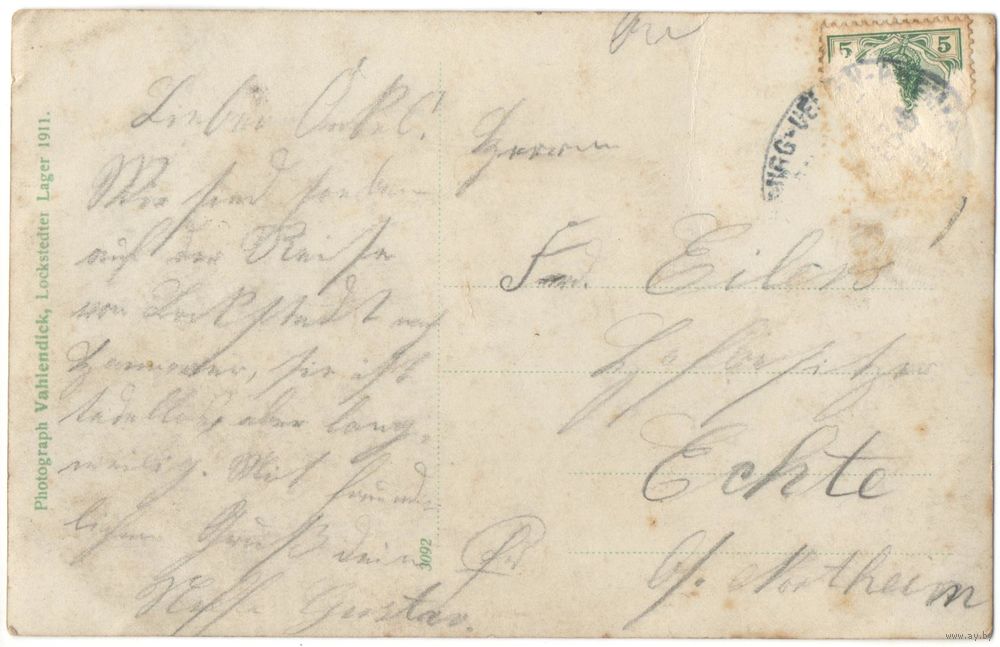 Photograph Vahlendick, Lockstedter Lager 1911.
Lieber Onkel!
Wir sind soeben
auf der Reise
von Lockstedt nach
Hannover, sie ist
tadellos, aber lang-
weilig. Mit freund-
lichem Gruß dein
Neffe Gustav.
3092
5 5
Herrn
Ferd. Eilers
Hofbesitzer
Echte
b/. Northeim
www.ay.by